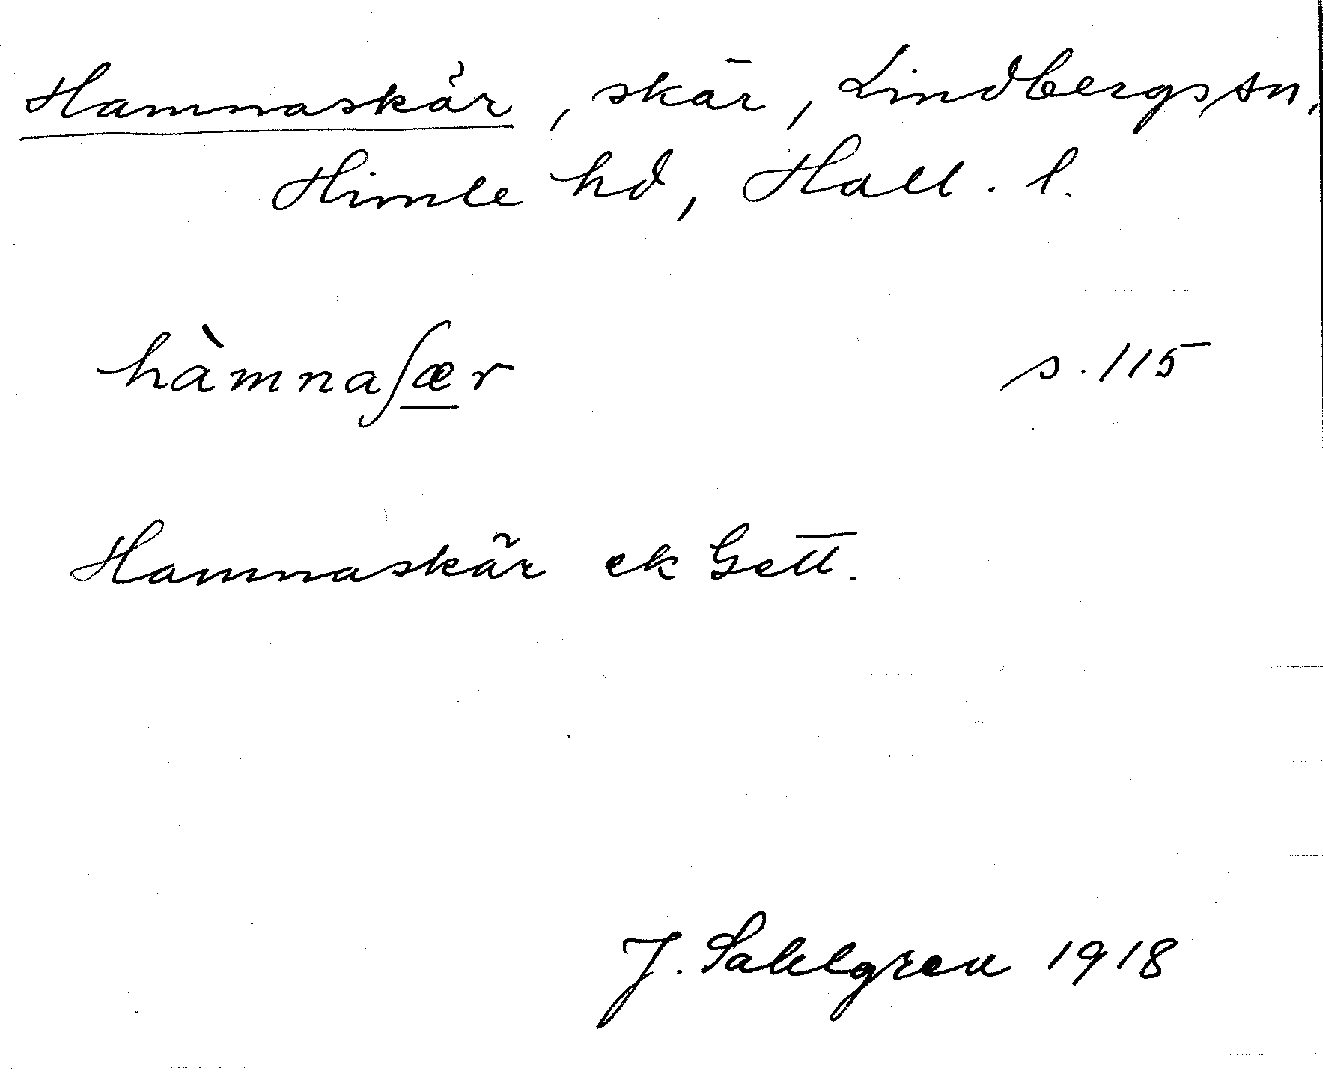 Hamnaskär, skär, Lindbergs sn,
Himle hd, Hall. l.
hàmnaʃær s. 115
Hamnaskär ek Gett.
J. Sahlgren 1918